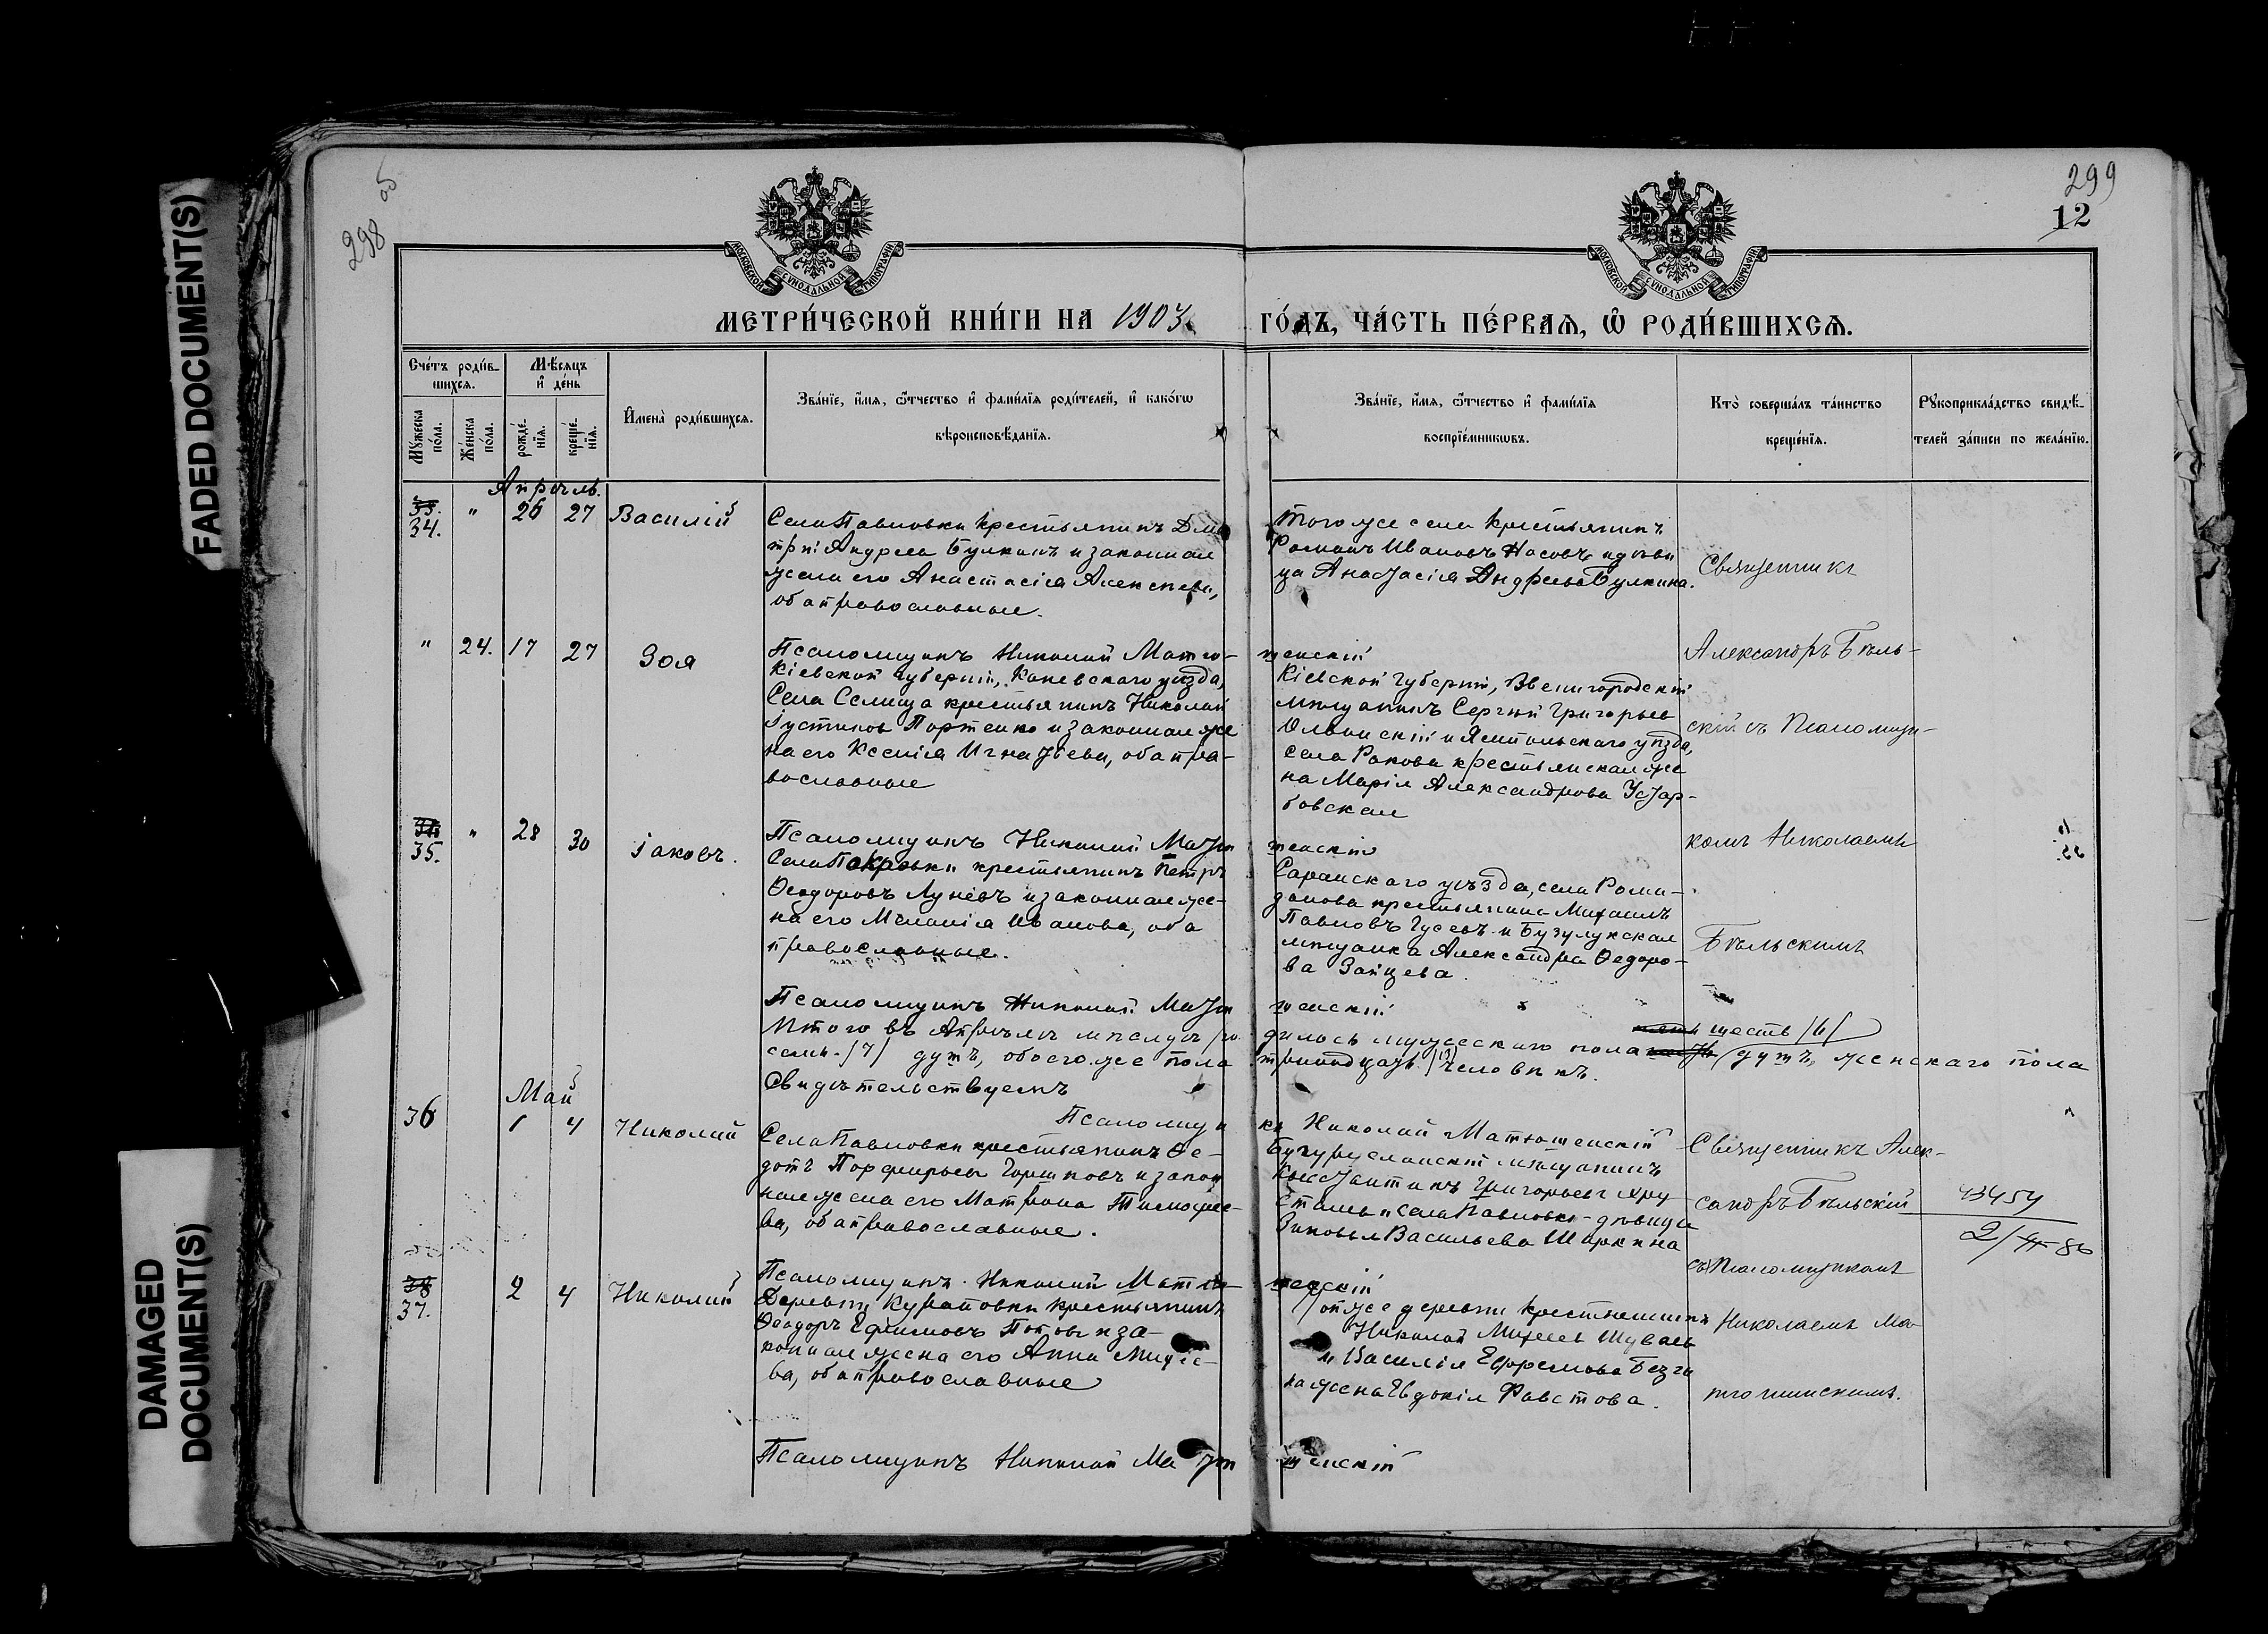 FADED DOCUMENT(S)
DAMAGED
DOCUMENT(S)
298 об
299
12
МОСКОВСКОЙ СѴНОДАЛЬНОЙ ТИПОГРАФІИ
МОСКОВСКОЙ СѴНОДАЛЬНОЙ ТИПОГРАФІИ
МЕТРИ́ЧЕСКОЙ КНИ́ГИ НА 1903
ГО́ДЪ, ЧА́СТЬ ПЕ́РВАЯ, Ѡ҆ РОДИ́ВШИХСѦ.
Сче́тъ роди́в-
шихсѧ.
Мꙋ́жеска по́ла.
Же́нска по́ла.
Мѣ́сѧцъ
и҆ де́нь
рожде́-нїѧ.
креще́-нїѧ.
И҆мена̀ роди́вшихсѧ.
Зва́нїе, и҆́мѧ, ѻ҆́тчество и҆ фами́лїѧ роди́телей, и҆ како́гѡ
вѣроисповѣ́данїѧ.
Зва́нїе, и҆́мѧ, ѻ҆́тчество и҆ фами́лїѧ
воспрїе́мникѡвъ.
Кто̀ соверша́лъ та́инство
креще́нїѧ.
Рꙋкоприкла́дство свидѣ́-
телей за́писи по жела́нїю.
Апрѣль.
34. " 26 27 Василій
Села Павловки крестьянинъ Дми
трій Андреевъ Булкинъ и законная
жена его Анастасія Алексѣева,
оба православные.
Того же села крестьянинъ
Романъ Ивановъ Носовъ и дѣви
ца Анастасія Андреева Булкина.
Священникъ
" 24. 17 27 Зоя
Псаломщикъ Николай Матю-
шенскій
Кіевской губерніи, Каневскаго уѣзда,
Села Селища крестьянинъ Николай
Іустиновъ Портенко и законная же
на его Ксенія Игнатьева, оба пра-
вославные
Кіевской губерніи, Звенигородскій
мѣщанинъ Сергѣй Григорьев
села Ракова крестьянская же
на Марія Александрова Устар-
бовская
Александръ Бѣль-
скій съ Псаломщи-
35. " 28 30 Іаковъ.
Псаломщикъ Николай Матю
шенскій
Села Покровки крестьянинъ Петръ
Ѳеодоровъ Луневъ и законная же-
на его Меланія Иванова, оба
православные.
Саранскаго уѣзда, села Рома-
данова крестьянинъ Михаилъ
Павловъ Гусевъ и Бузулукская
мѣщанка Александра Ѳедоро-
ва Зайцева.
комъ Николаемъ
Бѣльскимъ
Псаломщикъ Николай Матю
шенскій
Итого въ Апрѣлѣ мѣсяцѣ ро
дилось мужескаго пола шесть /6/ душъ, женскаго пола
семь /7/ душъ, обоего же пола
тринадцать /13/ человѣкъ.
Свидѣтельствуемъ
Май
36 1 4 Николай
Псаломщи
къ Николай Матюшенскій
Села Павловки крестьянинъ Ѳе-
дотъ Порфирьевъ Горшковъ и закон
ная жена его Матрона Тимофее-
ва, оба православные.
Бугурусланскій мѣщанинъ
Константинъ Григорьевъ Хру
сталевъ и села Павловки дѣвица
Зиновья Васильева Ширкина
Священникъ Алек-
сандръ Бѣльскій
съ Псаломщикомъ
43454
37. 2 4 Николай
Псаломщикъ Николай Матю-
шенскій
Деревни Курановки крестьянинъ
Ѳеодоръ Ефимовъ Поповъ и за-
конная жена его Анна Михее-
ва, оба православные
той же деревни крестьянинъ
Николай Михеевъ Шуваевъ
и Василія Ефремова Безги
на жена Евдокія Фавстова.
Николаемъ Ма-
тюшинскимъ.
Псаломщикъ Николай Матю
шенскій